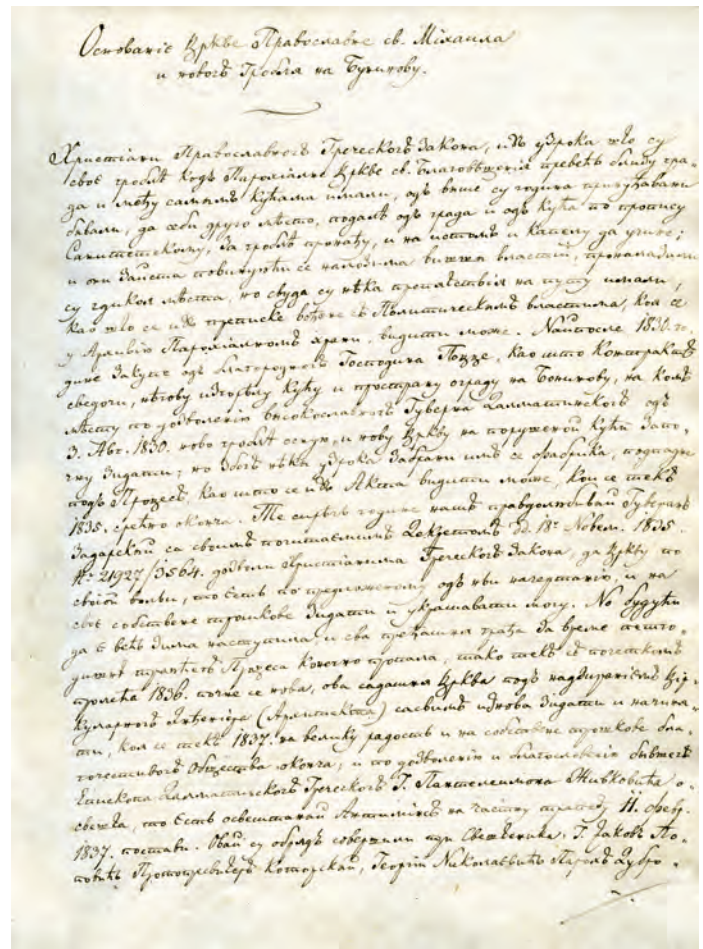 Основаніє Цркве Православне св. Міхаила
и новогъ Гробля на Бунинову.
Христіани Православногъ Греческогъ Закона, изъ узрока што су
своє гроблѣ кодъ Парохіалне Цркве св. Благовѣщенія превећъ близу гра-
да и међу самымъ кућама имали, одъ више су година принуђавани
бивали, да себи друго мѣсто, подалѣ одъ града и одъ кућа по пропису
Санитетскому, за гроблѣ пронађу, и на истомъ и капелу да учине;
и они заиста повинујући се налозима вишьи властій, проналазили
су гдикоя мѣста, но свуда су нѣка препятствія на путу имали,
као што се изъ преписке вођене съ Политическимъ властима, коя се
у Архивію Парохіалномъ храни, видити може. Найпосле 1830. го-
дине Закупе одъ благородногъ Господина Поцце, као што Контрактъ
сведочи, нѣгову изгорѣлу кућу и пространу ограду на Бонинову, на комъ
мѣсту по дозволенію високославногъ Губерна Далматинскогъ одъ
3. Авг. 1830. ново гроблѣ основу, и нову Цркву на поруженой кући запо-
чну зидати; но збогъ нѣки узрока забрани имъ се фабрика, подпадне
подъ Процесъ, као што се изъ Акта видити може, кои се текъ
1835. срећно оконча. Те сирѣчъ године нашъ правдолюбивый Губернъ
Задарскій са своимъ почитаемимъ Декретомъ Дд. 18ᵃ Новем. 1835.
№ 21927/3564. дозволи Христіанима Греческогъ Закона, да Цркву по
својой вольи, то єсть по предложеному одъ ньи начертанію, и на
своє собствене трошкове зидати и украшавати могу. Но будући
да є већъ зима наступила и сва пређашня грађа за време петго-
дишнѣгъ траянія Процеса коначно пропала, тако текъ съ почеткомъ
пролећа 1836. почне се нова, ова садашня Црква подъ надзиранієм Цир-
куларногъ Инђеніера (Архитекта) савсимъ изнова зидати и начиня-
ти, коя се текъ 1837. на велику радость и на собствене трошкове бла-
гочестивогъ Общества оконча, и по дозволенію и благословенію бившегъ
Епископа Далматинскогъ Греческогъ Г. Пантелеимона Живковића о-
свећена, то єсть освештаный Антимінсъ на часну трапезу 11. Февр.
1837. постави. Овай су обрядъ совершили три Свештеника, Г. Јаковъ По-
повићъ Протопревитеръ Которскій, Георгій Николаєвићъ Парохъ Дубро-